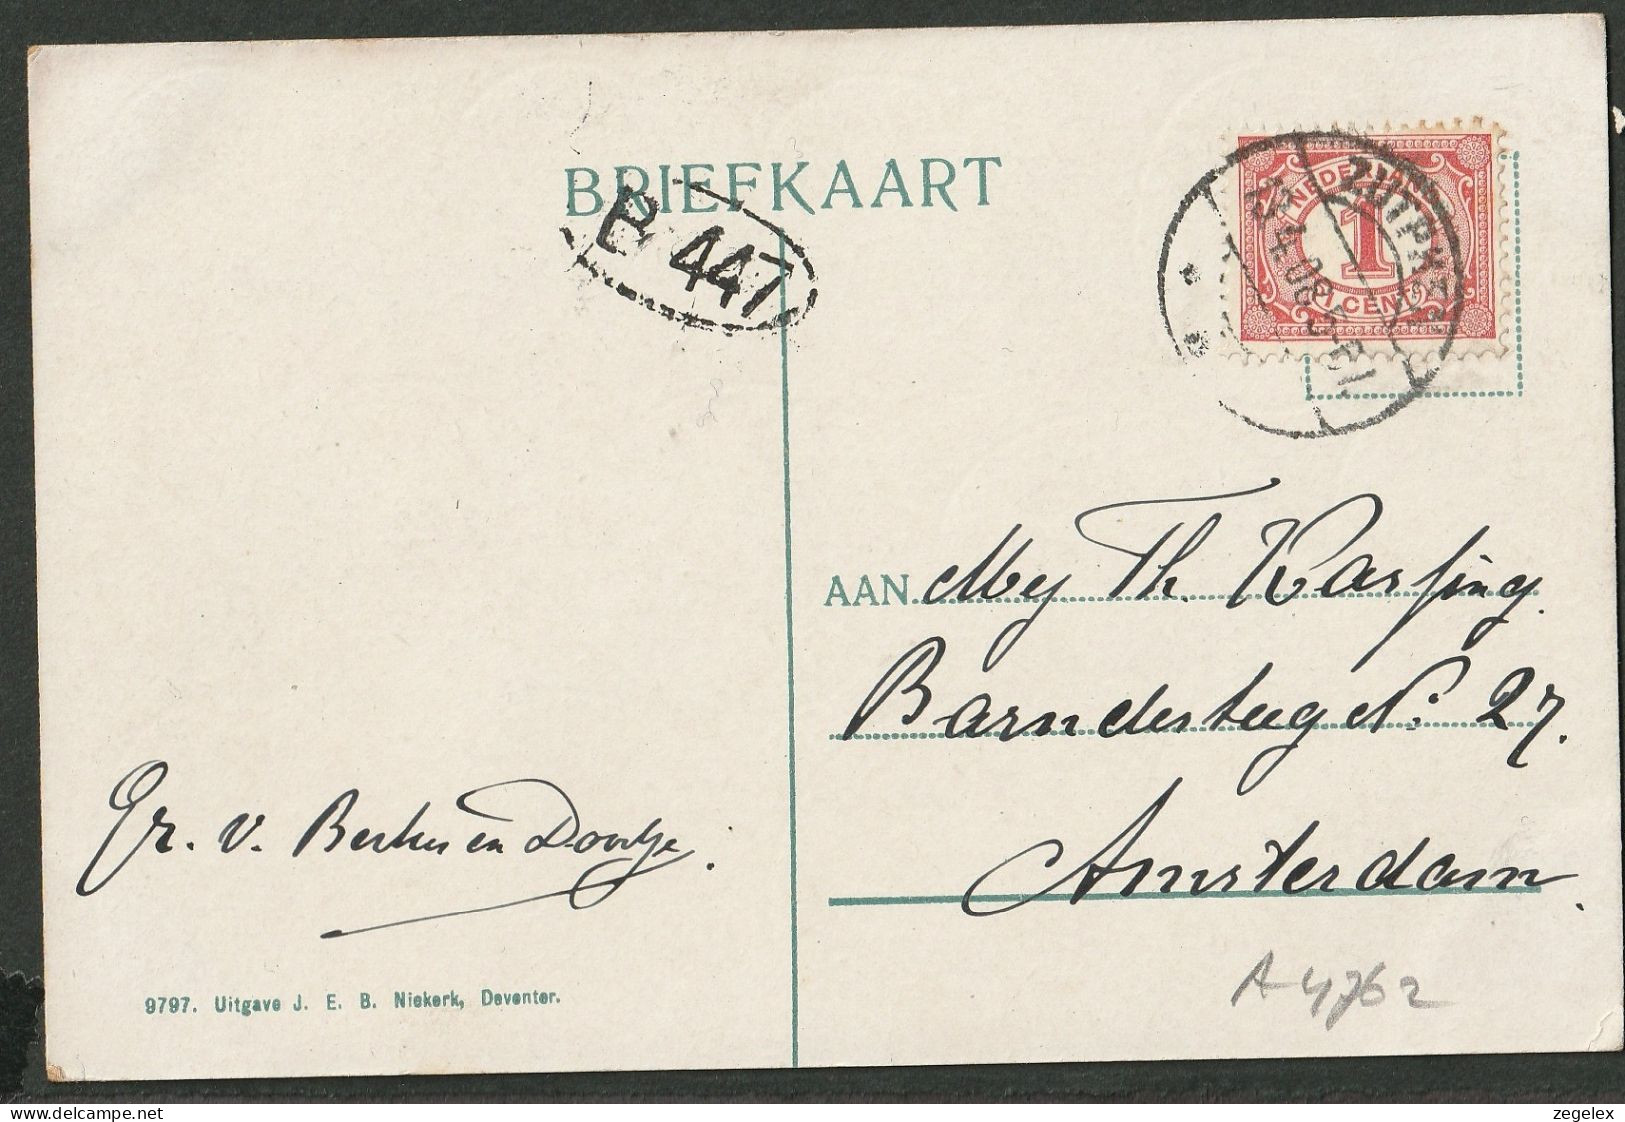 BRIEFKAART
B 447
NEDERLAND
1
1 CENT
ZUTPHEN
AAN Mej Th. Karsing.
Barndesteeg No 27.
Amsterdam.
Gr. v. Berkus en Dootje.
9797. Uitgave J. E. B. Niekerk, Deventer.
A 4762
© delcampe.net
zegelex